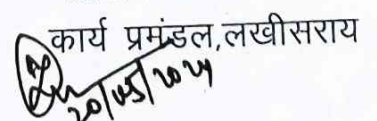 कार्य प्रमंडल,लखीसराय
20/05/2024